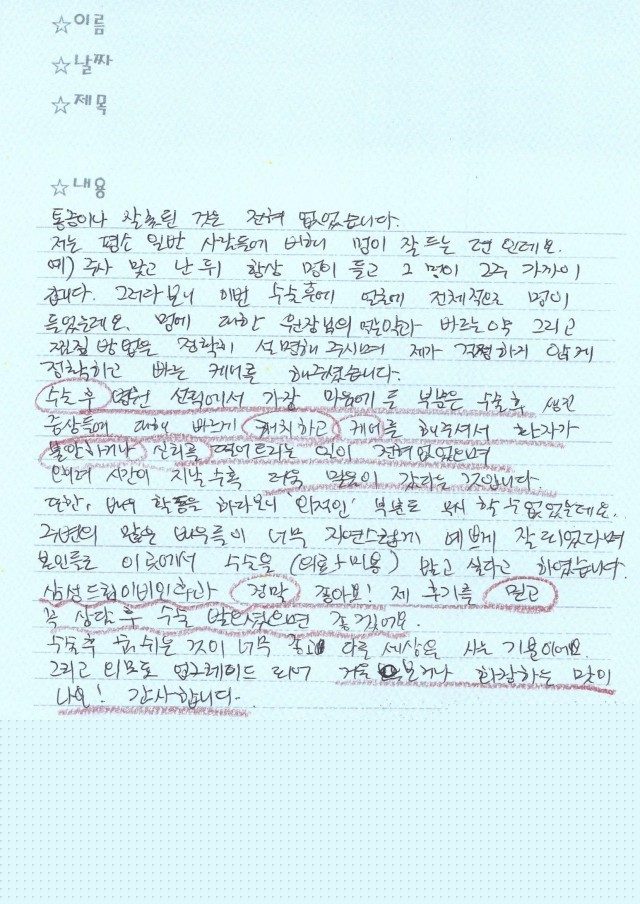 ☆이름
☆날짜
☆제목
☆내용
통증이나 잘못될 것은 전혀 없었습니다.
저는 평소 일반 사람들에 비해 멍이 잘 드는 편인데요.
예) 주사 맞고 난 뒤 항상 멍이 들고 그 멍이 2주 가까이
갑니다. 그러다보니 이번 수술후에 얼굴에 전체적으로 멍이
들었는데요. 멍에 대한 원장님의 바르는약 그리고
찜질 방법을 정확히 설명해 주시며 제가 걱정하지 않게
정확하고 빠른 케어를 해주셨습니다.
수술 후 병원 선택에서 가장 마음에 든 부분은 수술 후 생긴
증상들에 대해 빠르게 캐치하고 케어를 해주셔서 환자가
불안하거나 신뢰를 떨어트리는 일이 전혀없었으며
오히려 시간이 지날수록 더욱 믿음이 갔다는 것입니다
또한, 배우 활동을 하다보니 '외적인' 부분도 무시 할 수 없었는데요.
주변의 많은 배우들이 너무 자연스럽게 예쁘게 잘 되었다며
본인들도 이곳에서 수술을 (의료+미용) 받고 싶다고 하였습니다.
삼성드림이비인후과 정말 좋아요! 제 후기를 믿고
꼭 상담 후 수술 받으셨으면 좋겠어요.
수술후 숨쉬는 것이 너무 좋고 다른 세상을 사는 기분이에요.
그리고 외모도 업그레이드 되어 거울 보거나 화장하는 맛이
나요! 감사합니다.